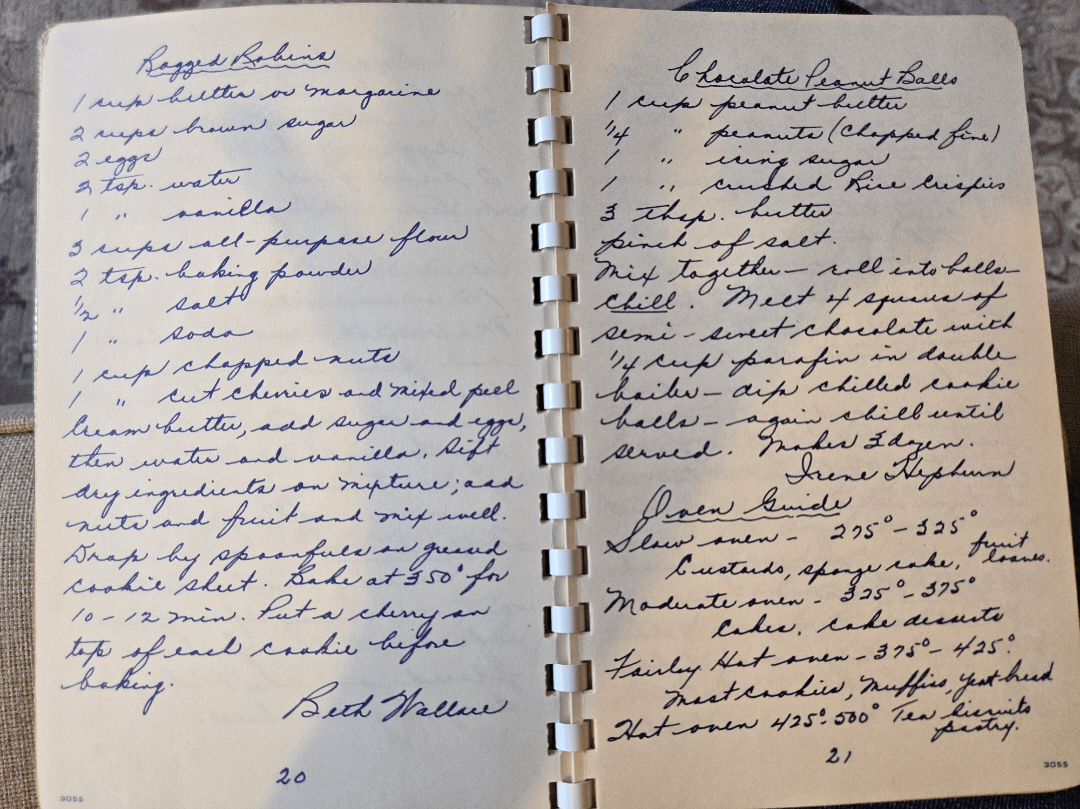 Ragged Robins
1 cup butter or margarine
2 cups brown sugar
2 eggs
2 tsp. water
1 " vanilla
3 cups all-purpose flour
2 tsp. baking powder
1/2 " salt
1 " soda
1 cup chopped nuts
1 " cut cherries and mixed peel
Cream butter, add sugar and eggs,
then water and vanilla. Sift
dry ingredients on mixture; add
nuts and fruit and mix well.
Drop by spoonfuls on greased
cookie sheet. Bake at 350° for
10-12 min. Put a cherry on
top of each cookie before
baking.
Beth Wallace
20
3055
Chocolate Peanut Balls
1 cup peanut butter
1/4 " peanuts (chopped fine)
1 " icing sugar
1 " crushed Rice Crispies
3 tbsp. butter
pinch of salt.
Mix together - roll into balls -
chill. Melt 4 squares of
semi-sweet chocolate with
1/4 cup parafin in double
boiler - dip chilled cookie
balls - again chill until
served. Makes 3 dozen.
Irene Hepburn
Oven Guide
Slow oven - 275° - 325°
Custards, sponge cake, fruit loaves.
Moderate oven - 325° - 375°
Cakes, cake desserts
Fairley Hot oven - 375° - 425°.
Most cookies, muffins, yeast bread
Hot oven 425° - 500° Tea biscuits
pastry.
21
3055